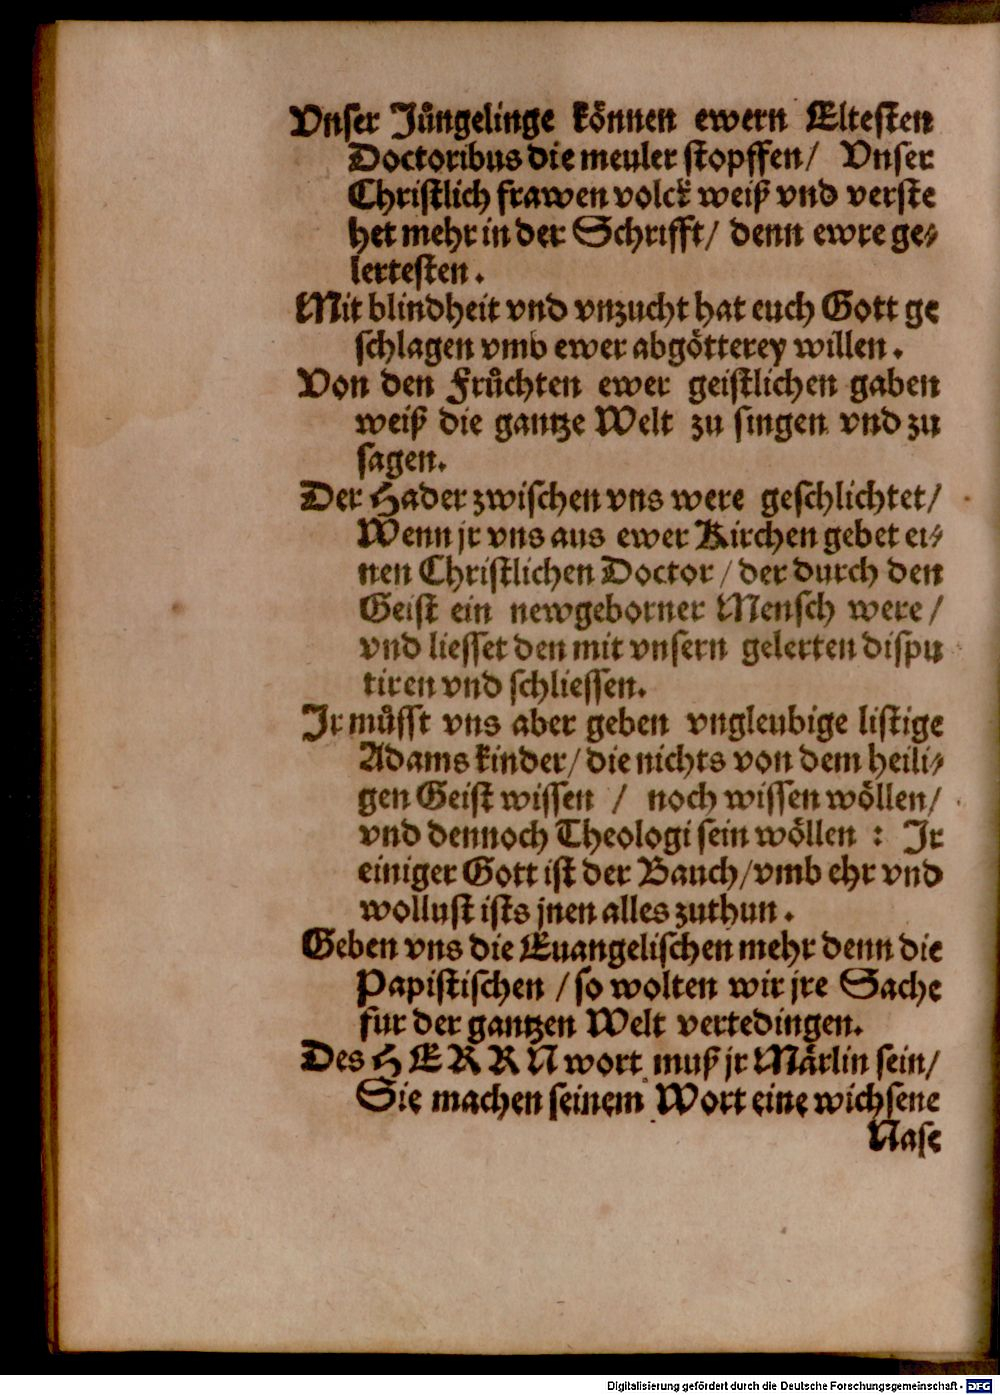 Vnser Jüngelinge können ewern Eltesten
Doctoribus die meuler stopffen/ Vnser
Christlich frawen volck weiß vnd verste
het mehr in der Schrifft/ denn ewre ge⸗
lertesten.
Mit blindheit vnd vnzucht hat euch Gott ge
schlagen vmb ewer abgötterey willen.
Von den Früchten ewer geistlichen gaben
weiß die gantze Welt zu singen vnd zu
sagen.
Der Hader zwischen vns were geschlichtet/
Wenn jr vns aus ewer Kirchen gebet ei⸗
nen Christlichen Doctor/ der durch den
Geist ein newgeborner Mensch were/
vnd liesset den mit vnsern gelerten dispu
tiren vnd schliessen.
Jr müsst vns aber geben vngleubige listige
Adams kinder/ die nichts von dem heili⸗
gen Geist wissen / noch wissen wöllen/
vnd dennoch Theologi sein wöllen : Jr
einiger Gott ist der Bauch/ vmb ehr vnd
wollust ists jnen alles zuthun.
Geben vns die Euangelischen mehr denn die
Papistischen / so wolten wir jre Sache
fur der gantzen Welt vertedingen.
Des HERRN wort muß jr Märlin sein/
Sie machen seinem Wort eine wichsene
Nase
Digitalisierung gefördert durch die Deutsche Forschungsgemeinschaft - DFG